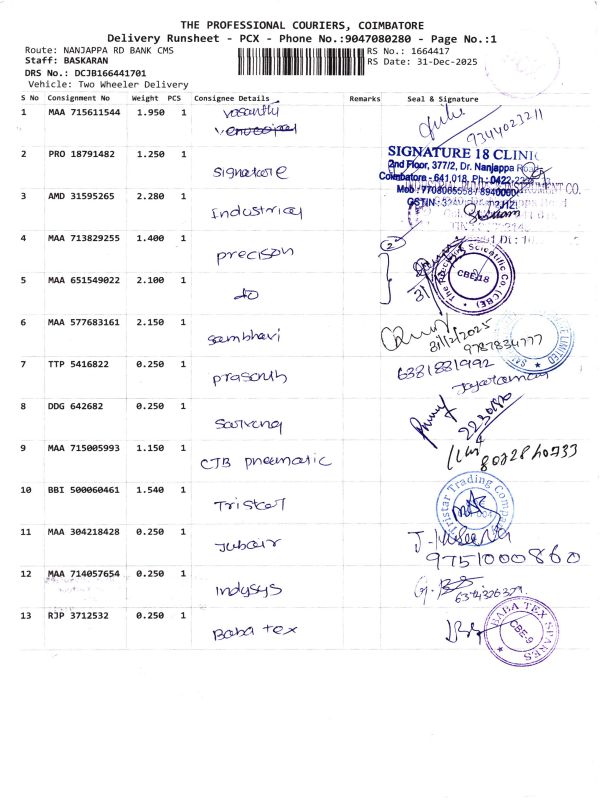 THE PROFESSIONAL COURIERS, COIMBATORE
Delivery Runsheet - PCX - Phone No.:9047080280 - Page No.:1
Route: NANJAPPA RD BANK CMS
RS No.: 1664417
Staff: BASKARAN
RS Date: 31-Dec-2025
DRS No.: DCJB166441701
Vehicle: Two Wheeler Delivery
S No Consignment No Weight PCS Consignee Details Remarks Seal & Signature
1 MAA 715611544 1.950 1 vasanthi
9344023211
2 PRO 18791482 1.250 1 signature
SIGNATURE 18 CLINIC
2nd Floor, 377/2, Dr. Nanjappa Road
Coimbatore - 641 018, Ph: 0422
Mob: 7708065558 / 8940004
GSTIN
3 AMD 31595265 2.280 1 industrial
4 MAA 713829255 1.400 1 precison
2
5 MAA 651549022 2.100 1 do
The Precision Scientific Co. (CBE)
CBE-18
6 MAA 577683161 2.150 1 sambhavi
31/12/2025
9787834777
LIMITED
7 TTP 5416822 0.250 1 prasanth
6381881992
Jayaraman
8 DDG 642682 0.250 1
9 MAA 715005993 1.150 1 CJB pneumatic
10 BBI 500060461 1.540 1 Tristar
Tristar Trading Company
11 MAA 304218428 0.250 1 Jubair
9751000860
12 MAA 714057654 0.250 1 indysys
13 RJP 3712532 0.250 1 Baba tex
BABA TEX SPARES
CBE-9